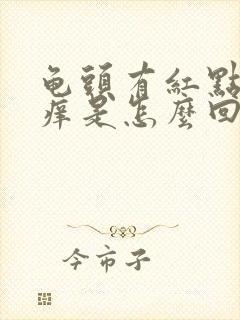 龟頭有紅點
痒是怎麼回
今市子